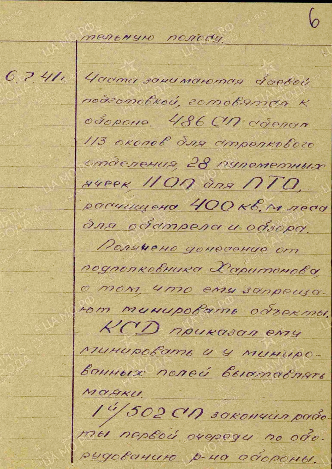 6
тельную полосу.
6.7.41г. Части занимаются боевой
подготовкой, готовятся к
обороне. 486 СП сделал
113 окопов для стрелкового
отделения, 28 пулеметных
ячеек 11 ОП для ПТО,
расчищена 400 кв. м леса
для обстрела и обзора.
Получено донесение от
подполковника Харитонова
о том, что ему запреща-
ют минировать объекты.
КСД приказал ему
минировать и у миниро-
ванных полей выставлять
маяки.
1й/502 СП закончил рабо-
ты первой очереди по обо-
рудованию р-на обороны.